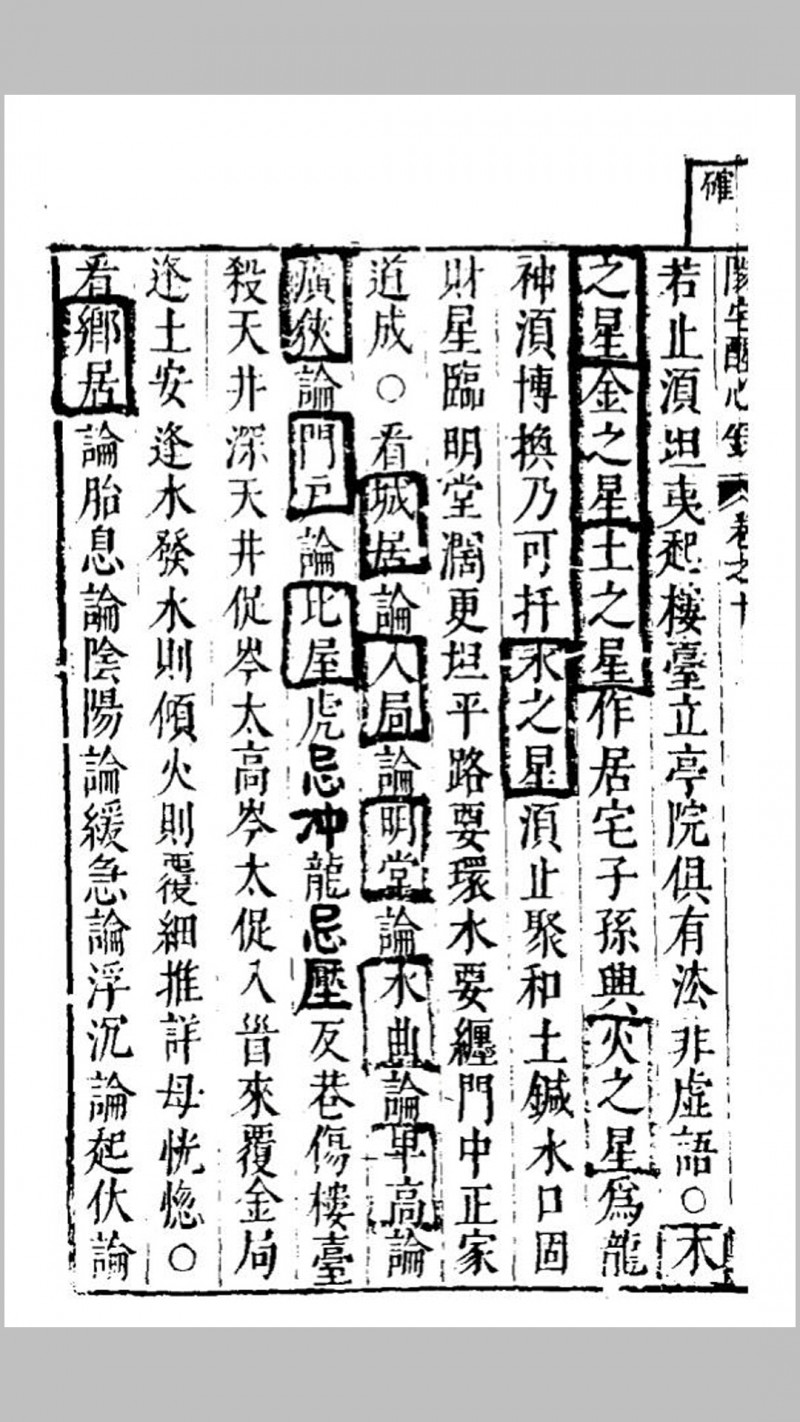 確
陽宅醒心錄 卷之十
若止須坦夷起樓臺立亭院俱有法非虛語○木
之星金之星土之星作居宅子孫興火之星爲龍
神須博換乃可扦水之星須止聚和土鍼水口固
財星臨明堂濶更坦平路要環水要纏門中正家
道成○看城居論入局論明堂論水曲論卑高論
廣狹論門戶論比屋虎忌冲龍忌壓反巷傷樓臺
殺天井深天井促岑太高岑太促入首來覆金局
逢土安逢水發水則傾火則覆細推詳毋恍惚○
看鄉居論胎息論陰陽論緩急論浮沉論起伏論